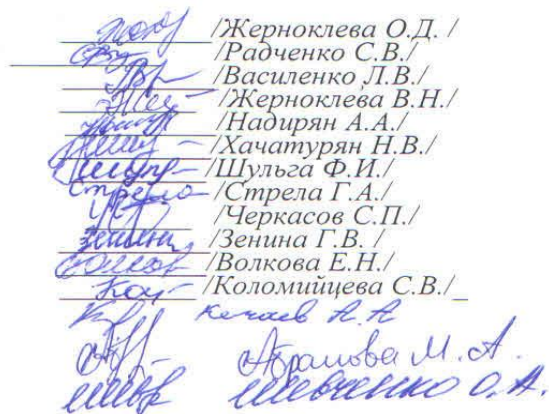 /Жерноклева О.Д. /
/Радченко С.В./
/Василенко Л.В./
/Жерноклева В.Н./
/Надирян А.А./
/Хачатурян Н.В./
/Шульга Ф.И./
Стрела /Стрела Г.А./
/Черкасов С.П./
/Зенина Г.В. /
/Волкова Е.Н./
/Коломийцева С.В./_
А.А
Абрамова М.А.
Шевченко О.А.